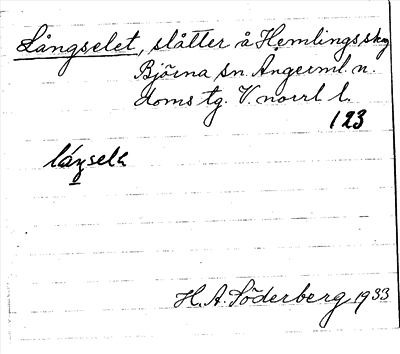 Långselet, slåtter å Hemlings skog
Björna sn. Ångerml. n.
doms tg. V. norrl l.
123
H. A. Söderberg 1933